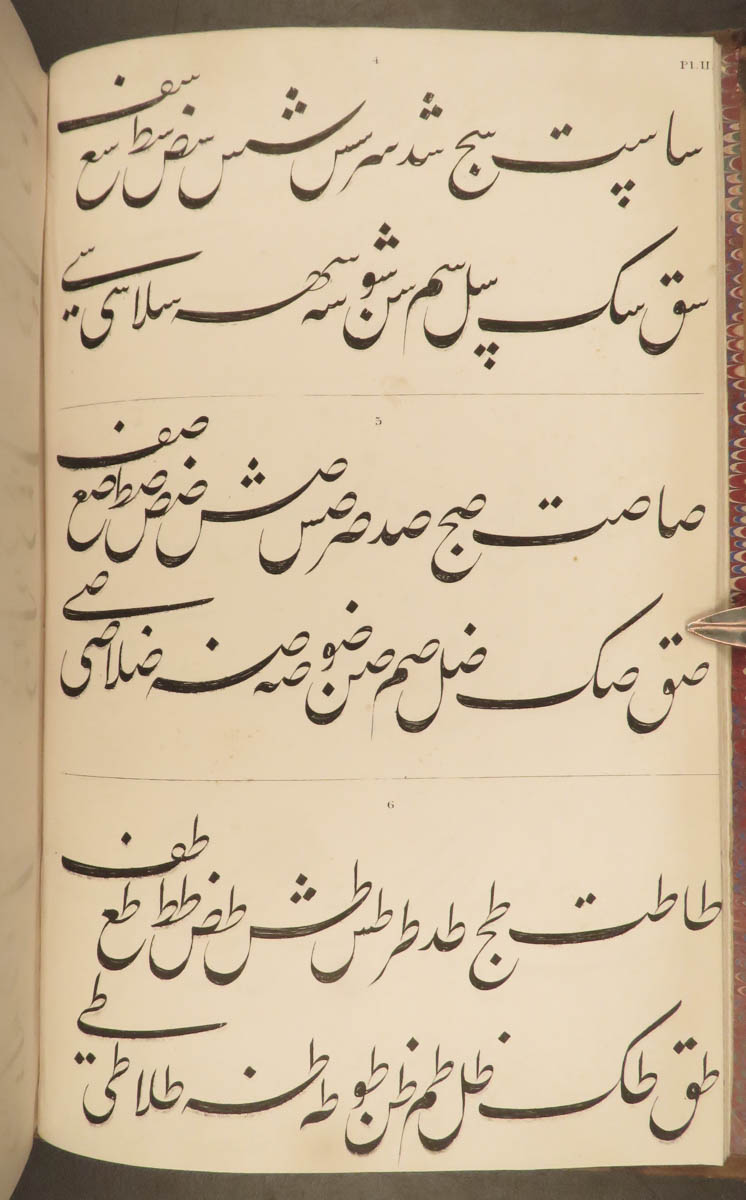 4
Pl. II
سا ست سج شد سر سس سش سض سط سع سف
سق سک سل سم سن شو سه سهه سلا سی سے
5
صا صت صج صد صر صس صش صض صط صع صف
صق صک ضل صم صن ضو صه صه ضلا صی صے
6
طا طت طج طد طر طس طش طض طط طع طف
طق طک ظل طم ظن طو طه طه طلا طی طے